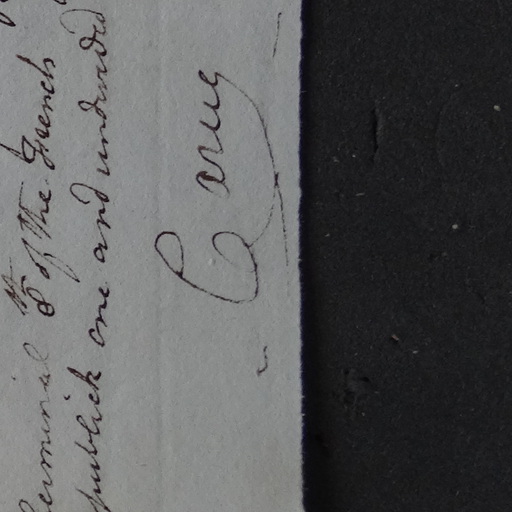 Germinal 8th of the French
publick one and undivided
Carug